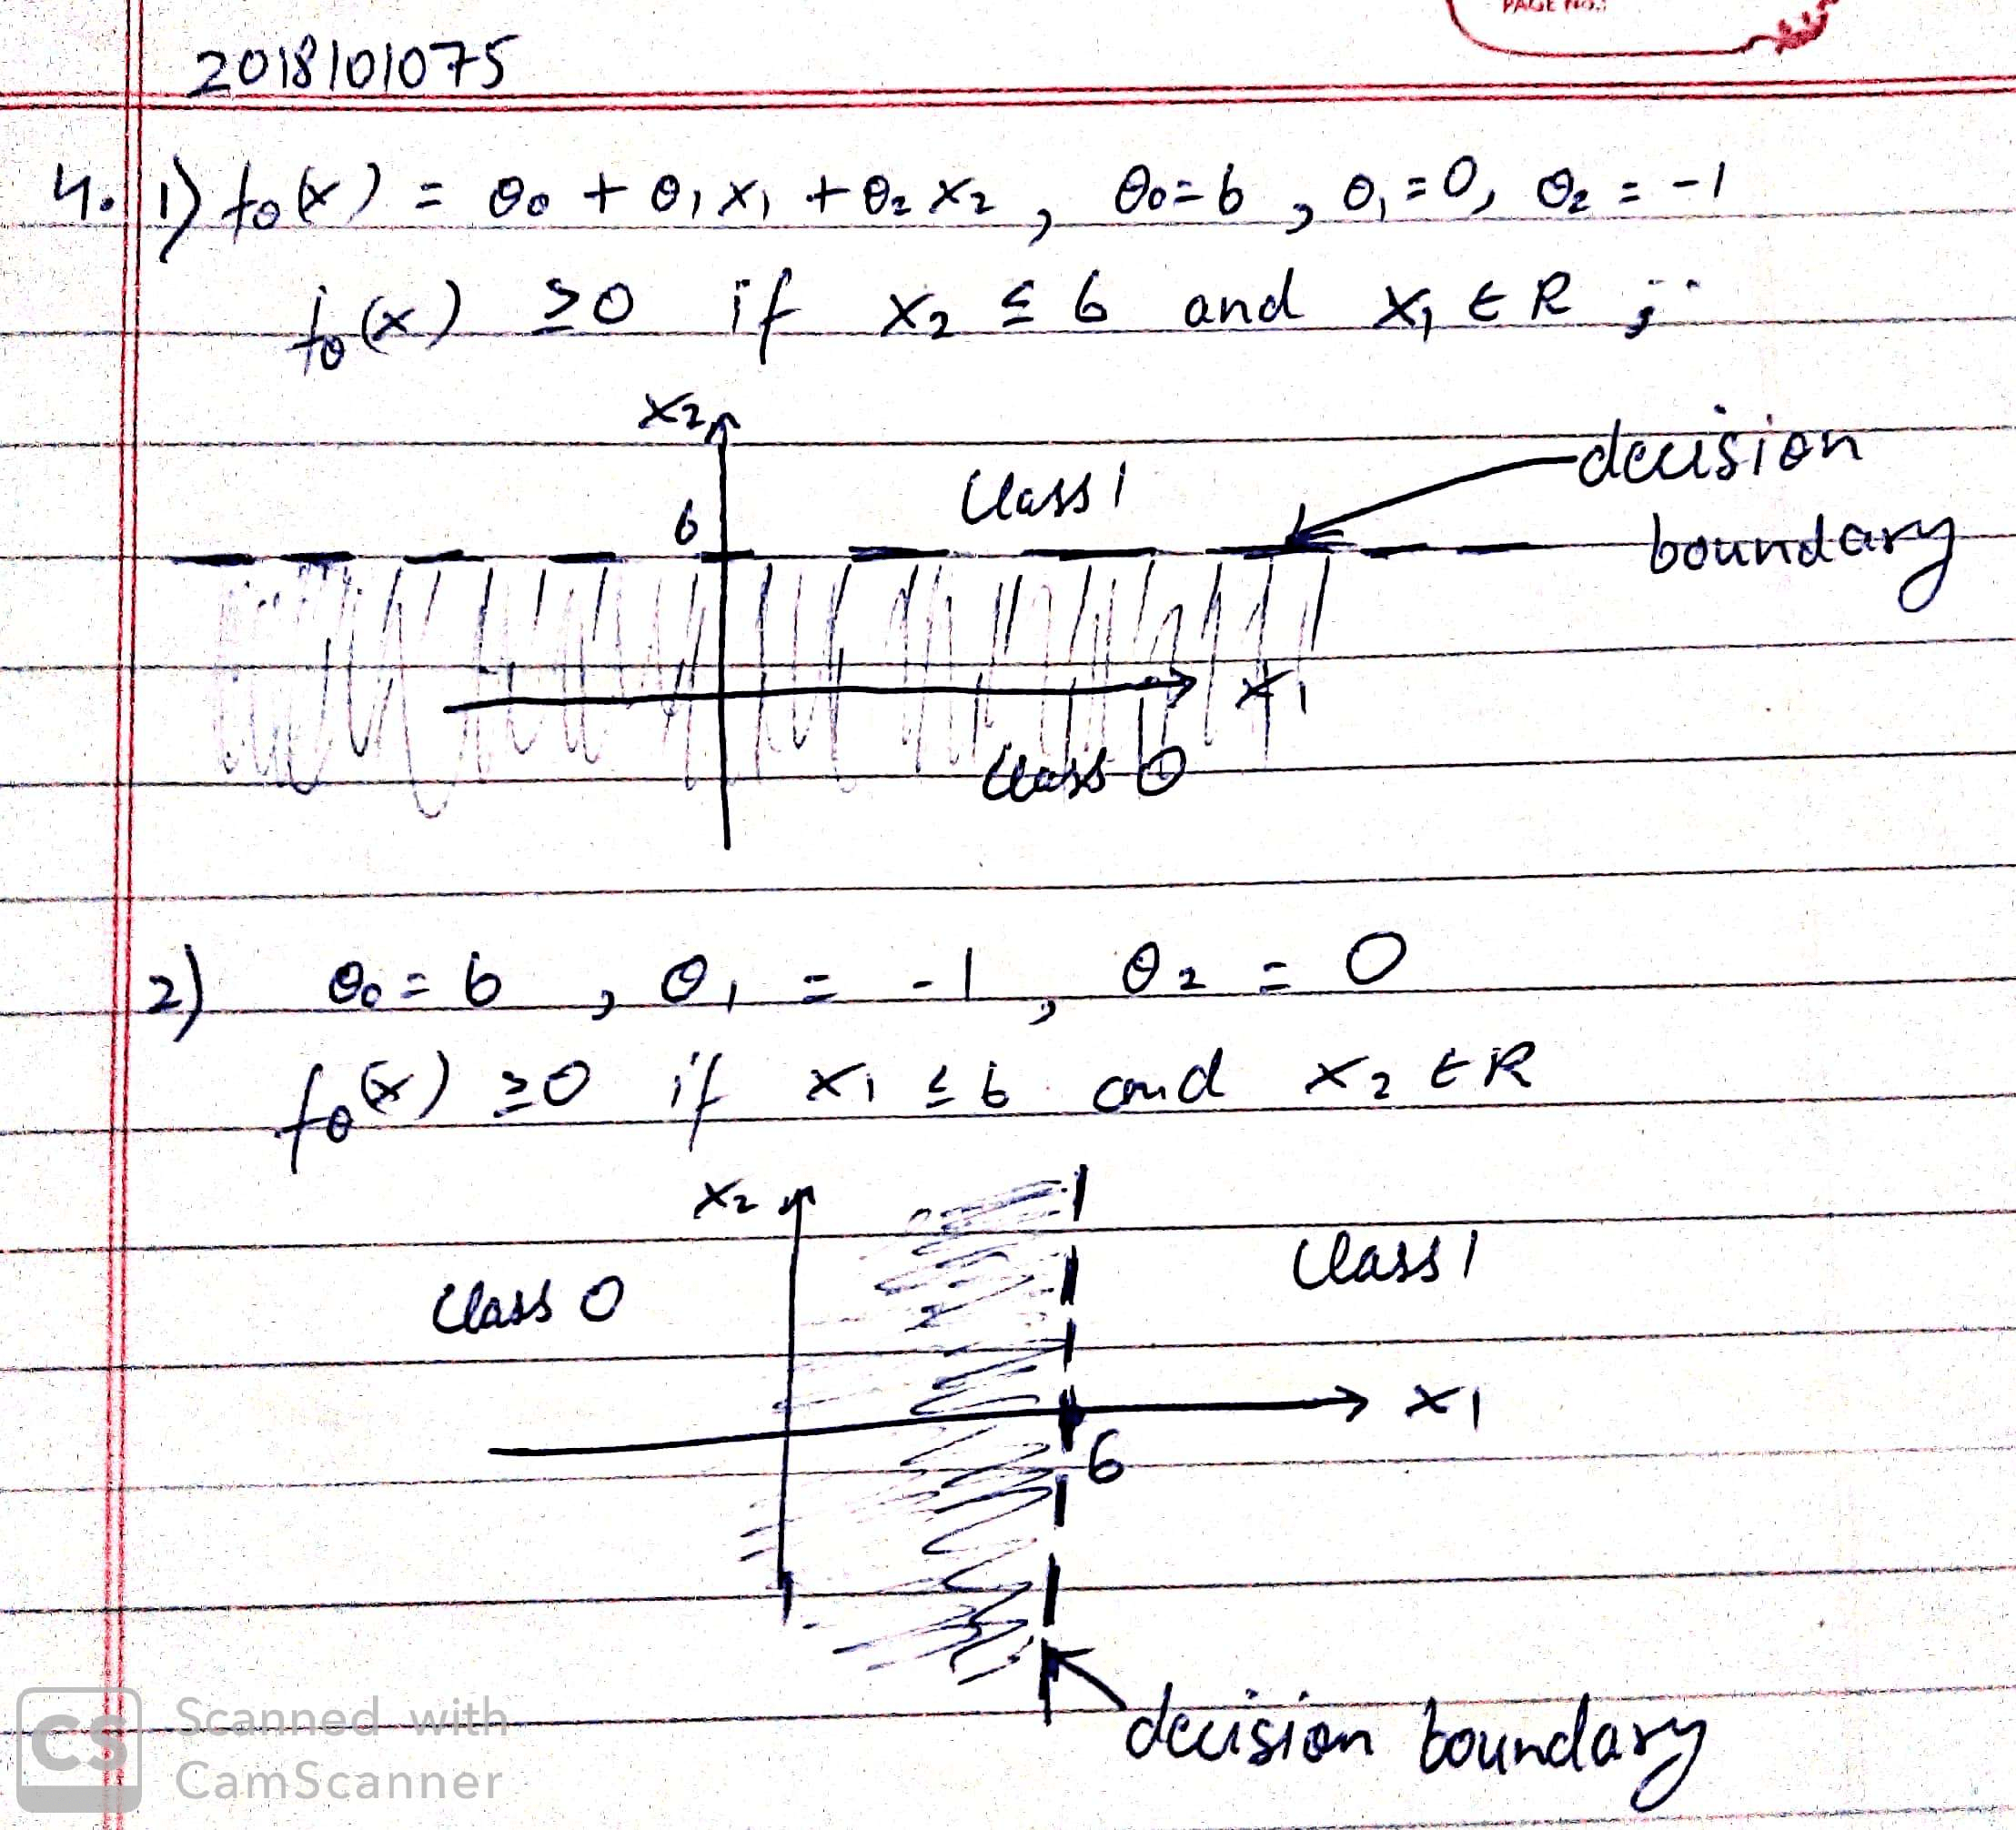 PAGE NO.:
2018101075
4. 1) fθ(x) = θ₀ + θ₁x₁ + θ₂x₂, θ₀=6, θ₁=0, θ₂ = -1
fθ(x) ≥0 if x₂ ≤ 6 and x₁ ∈ R ;
x₂
class 1
decision
boundary
6
x₁
class 0
2) θ₀ = 6, θ₁ = -1, θ₂ = 0
fθ(x) ≥0 if x₁ ≤ 6 and x₂ ∈ R
x₂
class 1
class 0
x₁
6
decision boundary
CS Scanned with
CamScanner